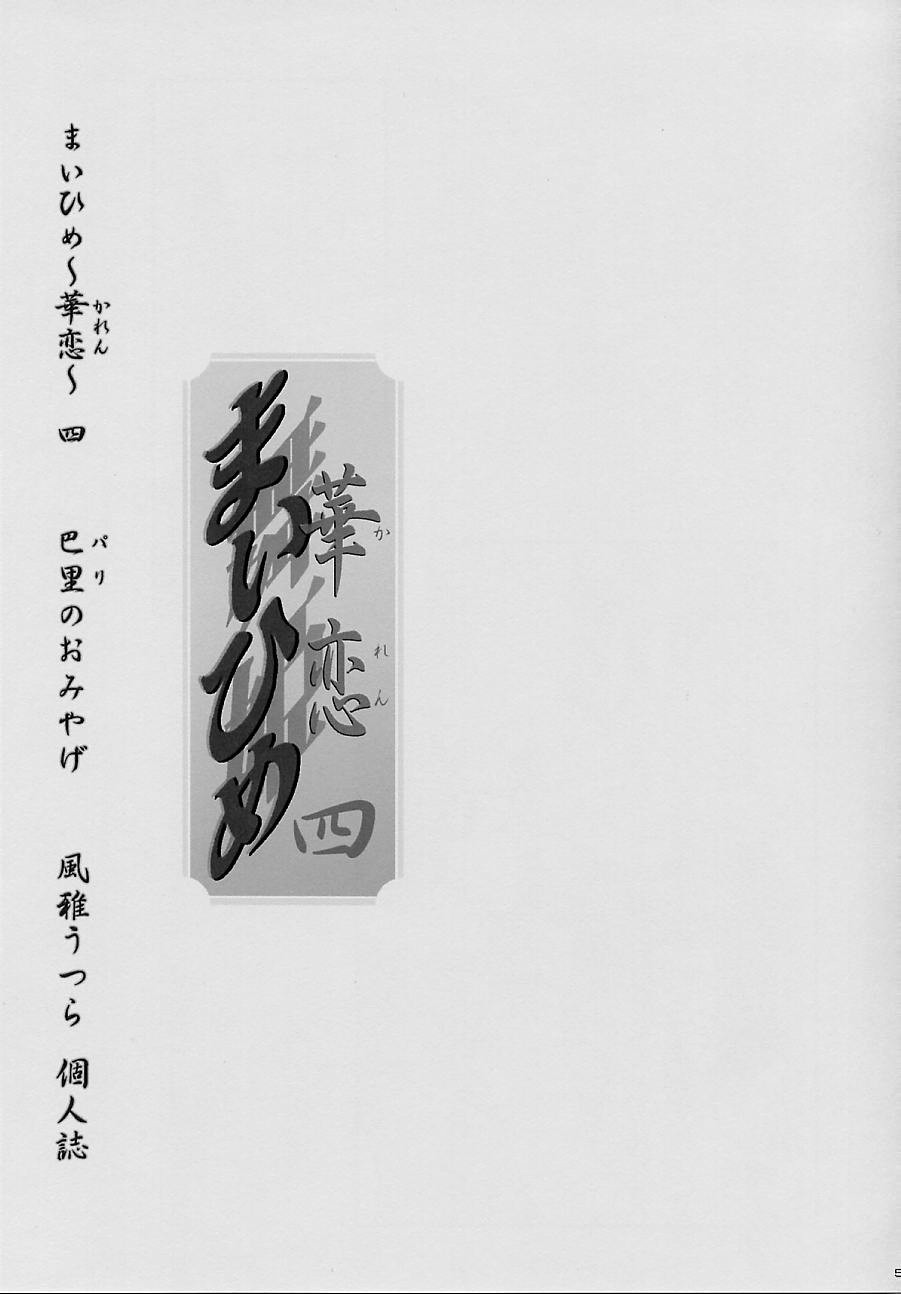 華恋 四
かれん
まいひめ
まいひめ～華恋～ 四 巴里のおみやげ 風雅うつら 個人誌
かれん
パリ
5